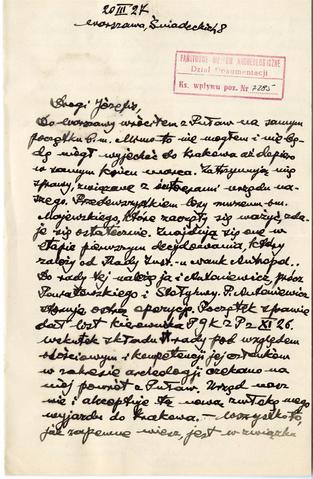 20 III 27
Warszawa, Śniadeckich 8
PAŃSTWOWE MUZEUM ARCHEOLOGICZNE
Dział Dokumentacji
Ks. wpływu poz. Nr 7285
Drogi Józefie,
Do Warszawy wróciłem z Puław na samym
początku b.m. Mimo to nie mogłem i nie bę-
dę mógł wyjechać do Krakowa aż dopiero
w samym końcu marca. Zatrzymują mię
sprawy, związane z urzędu na-
szego. Przedewszystkiem losy muzeum im.
Majewskiego, które zaczęły się ważyć, zda-
je się ostatecznie. Znajdują się one w
etapie pierwszym decydowania, który
zależy od Rady Inst. Nauk Antropol.
Do rady tej należą ja i Antoniewicz, prócz
i Stołyhwy. P. Antoniewicz
opozycję. Początek sprawie
dał list kierownika PGK z XI 26.
wskutek składu rady pod względem
ilościowym i kompetencji jej członków
w zakresie archeologji czekano na
mój powrót z Puław. Urząd nasz
wie i akceptuje tę nową zwłokę mego
wyjazdu do Krakowa. — Wszystko to,
jak zapewne wiesz, jest w związku